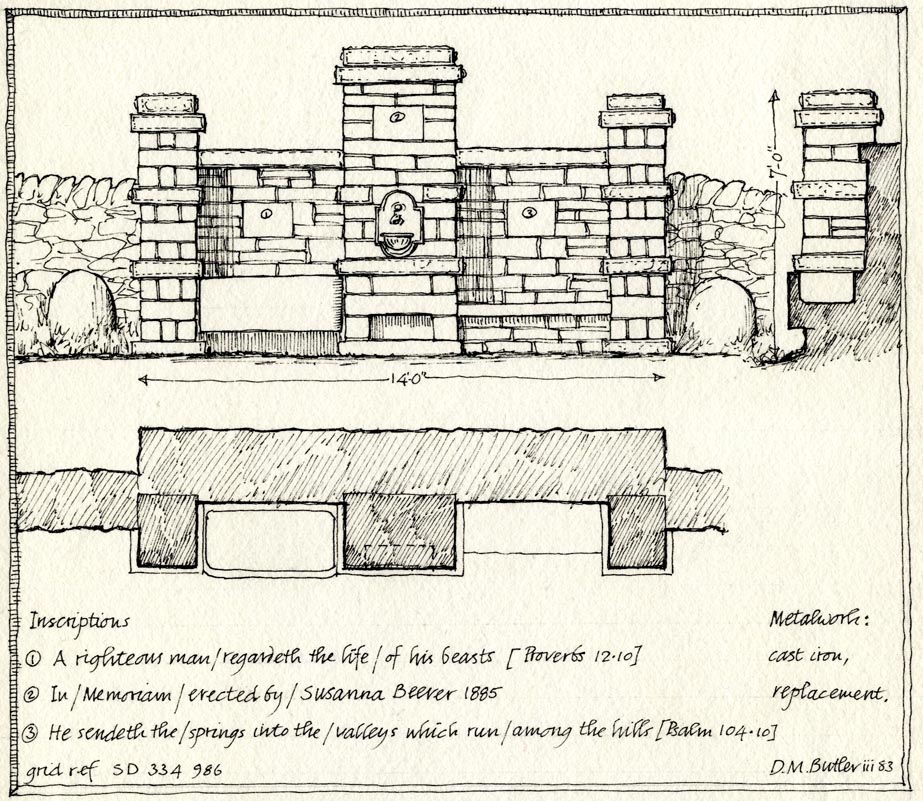 ②
① ③
7'-0"
14'-0"
Inscriptions
① A righteous man/regardeth the life/of his beasts [Proverbs 12·10]
② In/Memoriam/erected by/Susanna Beever 1885
③ He sendeth the/springs into the/valleys which run/among the hills [Psalm 104·10]
grid ref SD 334 986
Metalwork:
cast iron,
replacement.
D.M.Butler iii 83